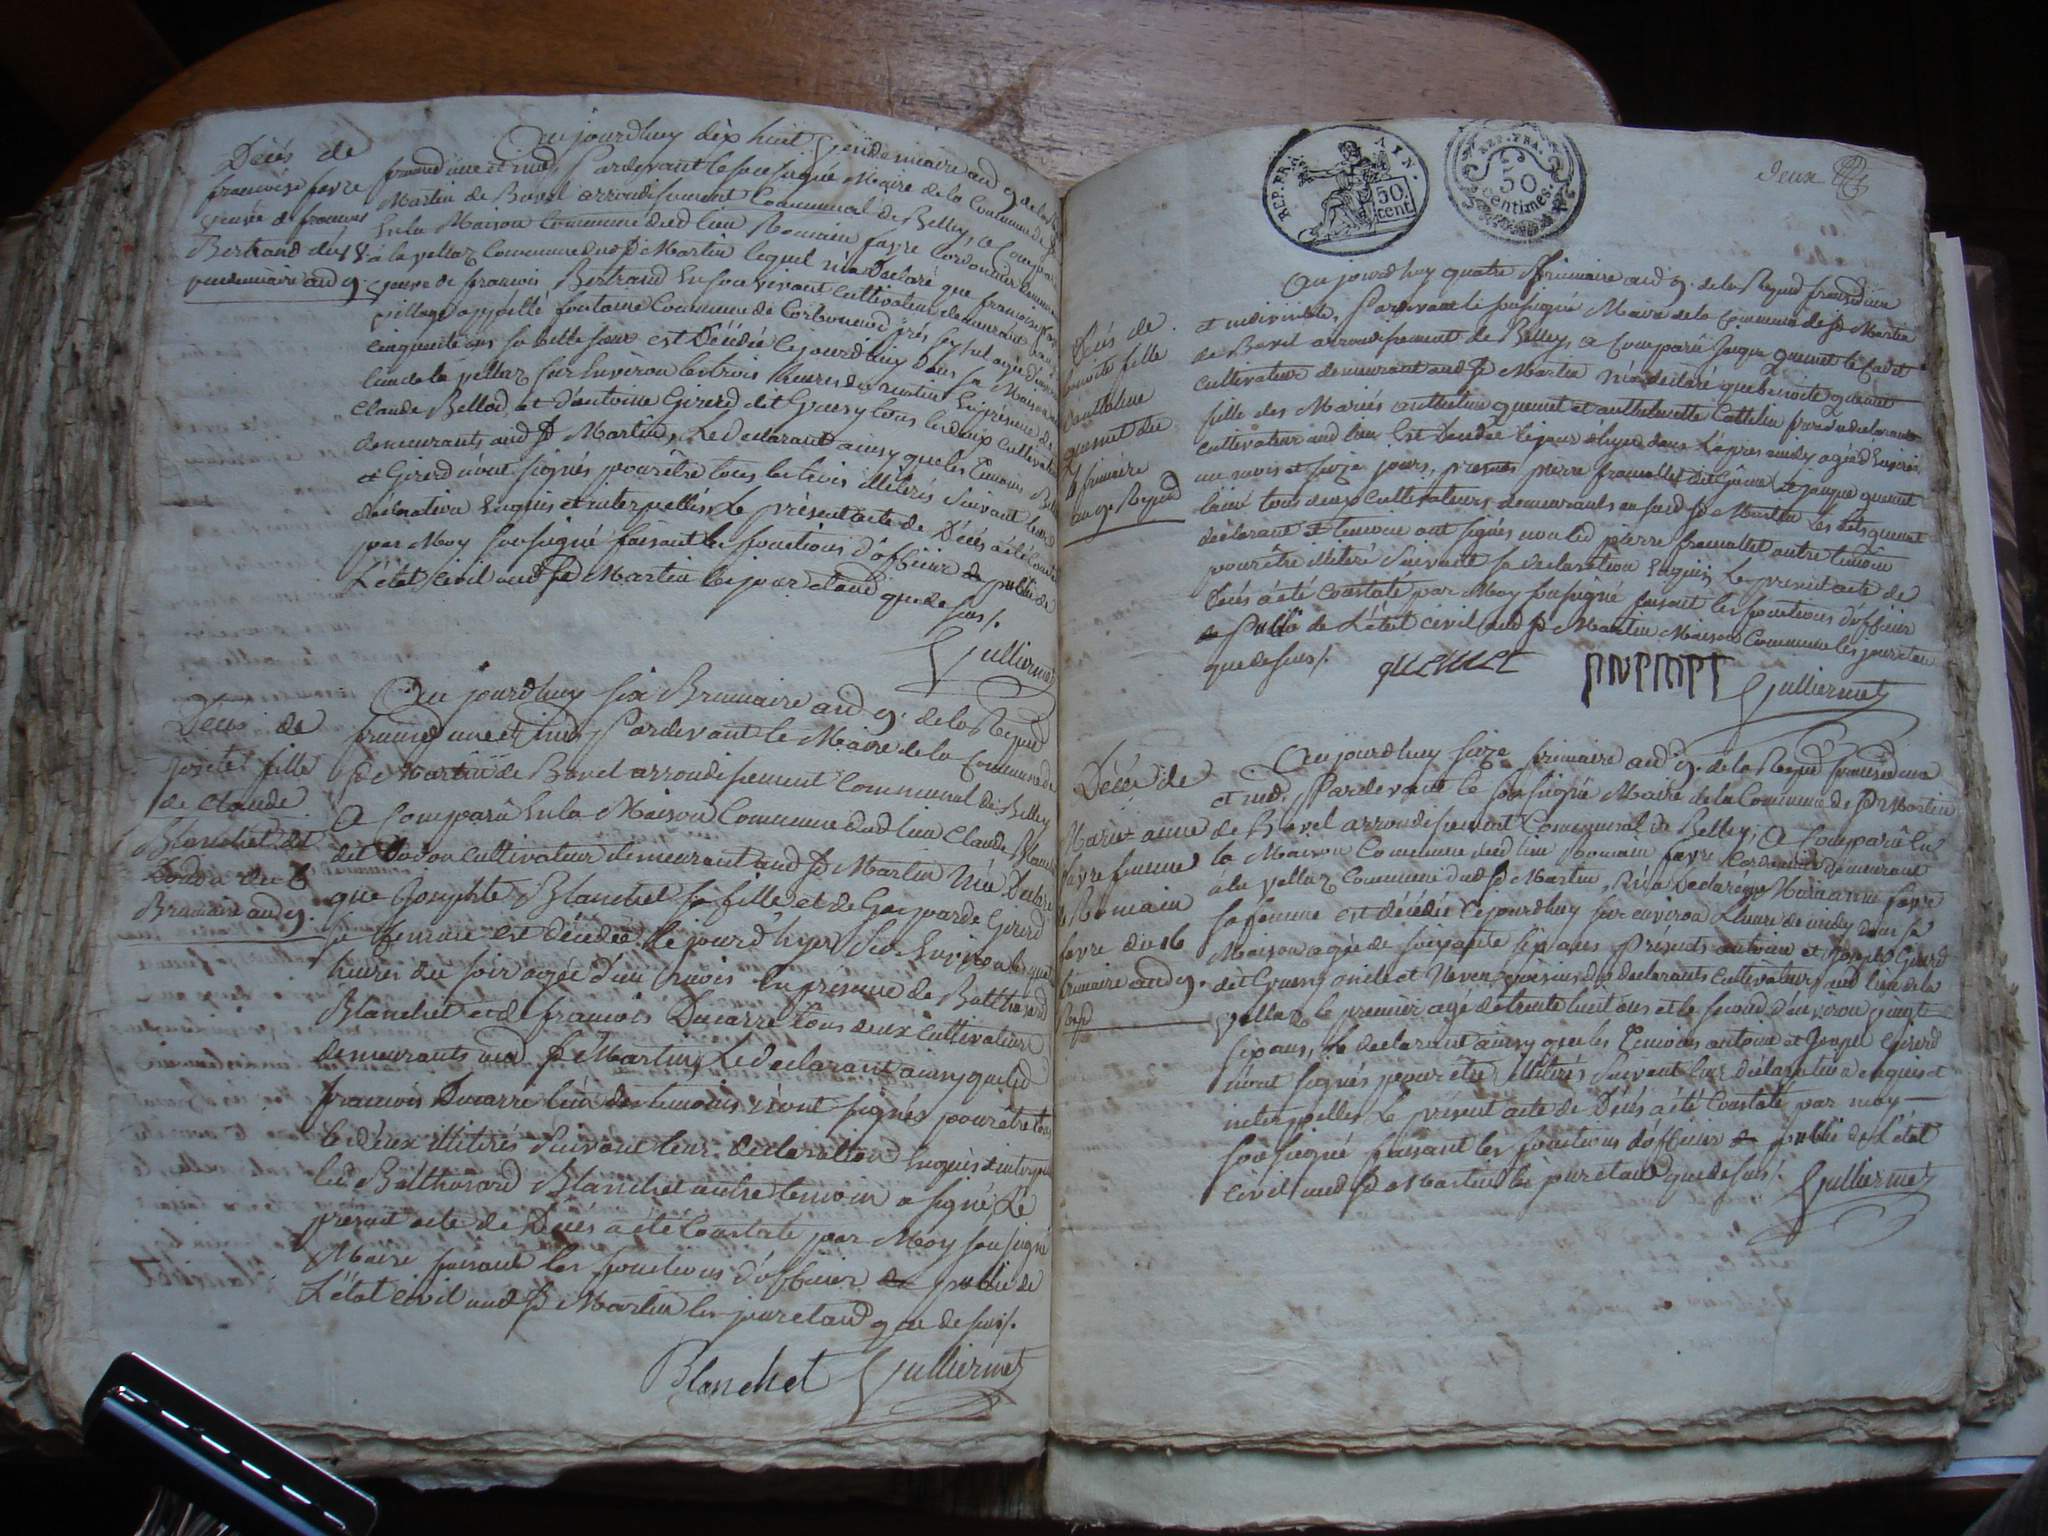 Décés de
francoise favre
veuve de francois
Bertrand du 18
vendemiaire an 9.
Aujourdhuy dix huit Vendemiaire an 9 de la
francd une et ind, Pardevant le soussigné Maire de la Commune de St
Martin de Bavel arrondissement Communal de Belley, a Comparu
En la Maison Commune dud lieu Romain favre Cordonnier demeurant
à la vellaz Commune dud St Martin lequel m'a Declaré que francoise favre
veuve de francois Bertrand En son vivant cultivateur demeurant au
village appellé fontaine Commune de Corbonod près seyssel agée d'environ
cinquante ans sa belle soeur est Décédée cejourdhuy dans sa Maison au
lieu de la vellaz sur Environ les trois heures du matin En présence de
Claude Bellod et d'antoine Girerd dit Grassy tous les deux cultivateurs
demeurants aud St Martin, Le Declarant ainsy que les Temoins Bellod
et Girerd n'ont signés pour être tous les trois illiterés Suivant leur
déclaration Enquis et interpellés, Le présent acte de Décés a été Constaté
par Moy soussigné faisant les fonctions d'officier public de
L'état civil aud St Martin les jour et an que dessus /.
Gulliermet
Décés de
josête fille
de claude
Blanchet dit
Dodon du 6
Brumaire an 9.
Aujourdhuy six Brumaire an 9. de la Repud
francd une et ind, Pardevant le Maire de la Commune de
St Martin de Bavel arrondissement Communal de Belley
A Comparû En la Maison Commune dud lieu Claude Blanchet
dit Dodon cultivateur demeurant aud St Martin M'a Declaré
que Josephte Blanchet sa fille et de Gasparde Girerd
sa femme est décédée le jour d'hyer sur Environ les quatre
heures du soir agée d'un mois En présence de Balthazard
Blanchet et de francois Ducarre Tous deux cultivateurs
demeurants aud St Martin, Le declarant ainsy que led
francois Ducarre l'un des temoins n'ont signés pour être tous
les deux illiterés Suivant leur declaration Enquis et interpellés
led Balthazard Blanchet autre temoin a signé, Le
present acte de Décés a été Constaté par Moy soussigné
Maire faisant les fonctions d'officier public de
L'état civil aud St Martin les jour et an que dessus /.
Blanchet Gulliermet
REP. FRA. AIN.
50 cent.
REP. FRA.
50 centimes.
Deux
Décés de
benoite fille
d'anthelme
quenet du
4 frimaire
an 9. Repud
Aujourdhuy quatre frimaire an 9. de la Repud francd une
et indivisible, Pardevant le soussigné Maire de la Commune de St Martin
de Bavel arrondissement de Belley, a Comparû Jaque quenet le Cadet
cultivateur demeurant aud St Martin M'a declaré que benoite quenet
fille des Mariés anthelme quenet et anthelmette Cattelin frere du declarant
cultivateur aud lieu Est Decedée le jour d'hyer dans L'apres midy agée d'Environ
un mois et seize jours, presents pierre framollet dit et jaque quenet
l'ainé tous deux cultivateurs demeurants au sud St Martin les dets quenet
déclarant et temoin ont signés non led pierre framollet autre temoin
pour être illiteré Suivant sa declaration Enquis, Le present acte de
Décés a été Constaté par Moy soussigné faisant les fonctions d'officier
public de L'état civil aud St Martin Maison Commune les jour et an
que dessus /. quenet quenet Gulliermet
Décés de
Marie anne
favre femme
de Romain
favre du 16
frimaire an 9.
Repd
Aujourdhuy seize frimaire an 9. de la Repud francd une
et ind, Pardevant le soussigné Maire de la Commune de St Martin
de Bavel arrondissement Communal de Belley, A Comparû En
la Maison Commune dud lieu Romain favre Cordonnier demeurant
à la vellaz Commune dud St Martin, M'a Declaré que Marie anne favre
sa femme est décédée cejourdhuy sur environ L'heure de midy dans sa
Maison agée de soixante six ans Présents antoine et Joseph Girerd
dit Grassy oncle et Neveu voisins des declarants cultivateurs aud lieu de la
vellaz, le premier agé de trente huit ans et le second d'environ vingt
six ans, Le declarant ainsy que les Temoins antoine et Joseph Girerd
n'ont signés pour être illiterés Suivant leur déclaration enquis et
interpellés, Le présent acte de Décés a été Constaté par moy
soussigné faisant les fonctions d'officier public de L'état
civil aud St Martin les jour et an que dessus /. Gulliermet